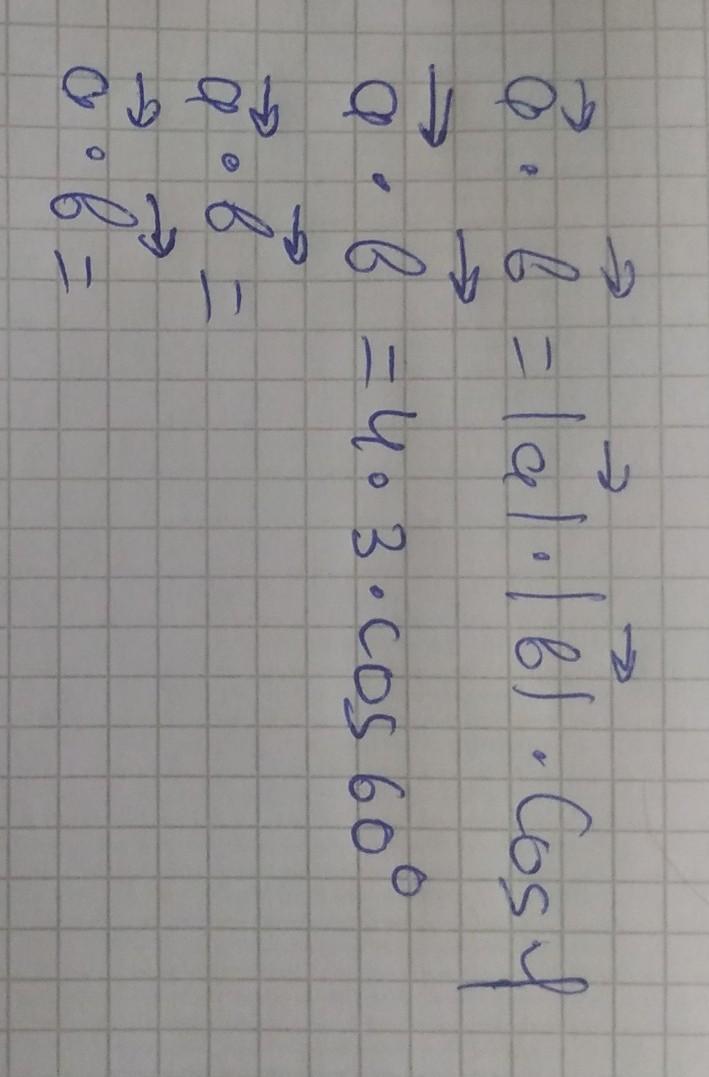 a⃗ · b⃗ = |a⃗| · |b⃗| · cos φ
a⃗ · b⃗ = 4 · 3 · cos 60°
a⃗ · b⃗ =
a⃗ · b⃗ =